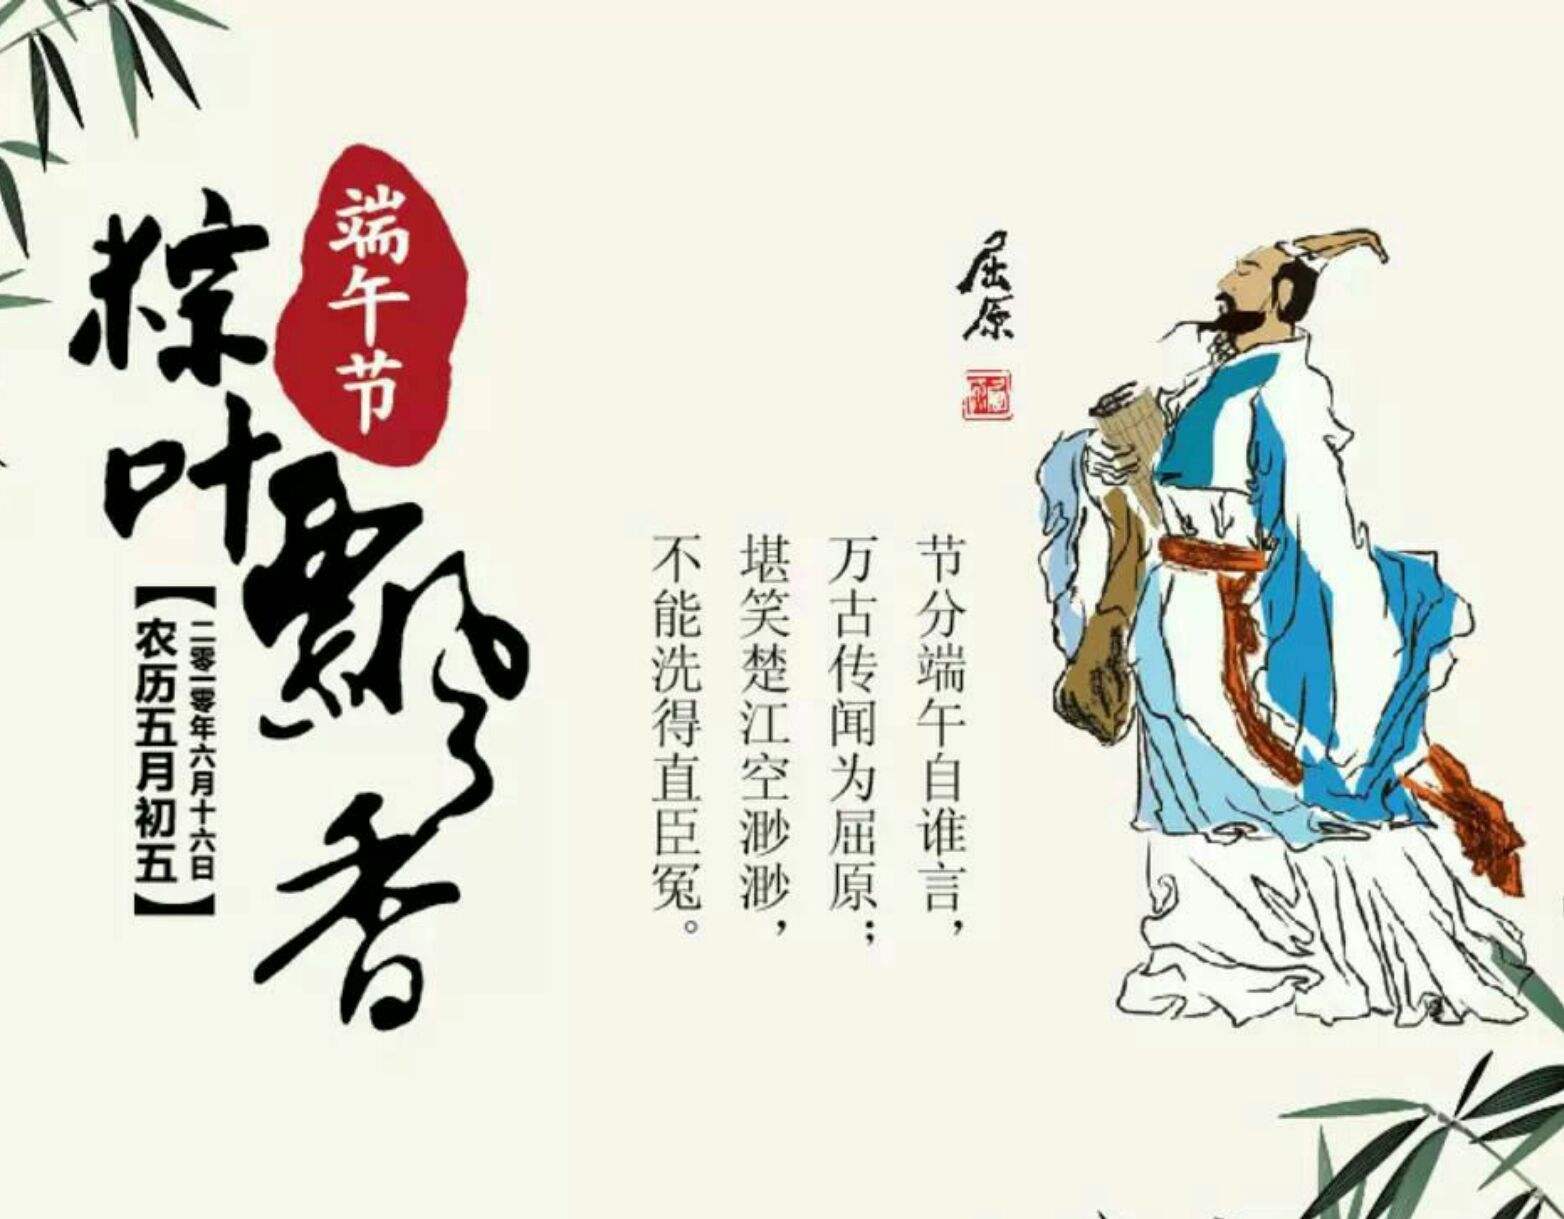 端午节
粽叶飘香
【二零一零年六月十六日
农历五月初五】
屈原
节分端午自谁言，
万古传闻为屈原；
堪笑楚江空渺渺，
不能洗得直臣冤。